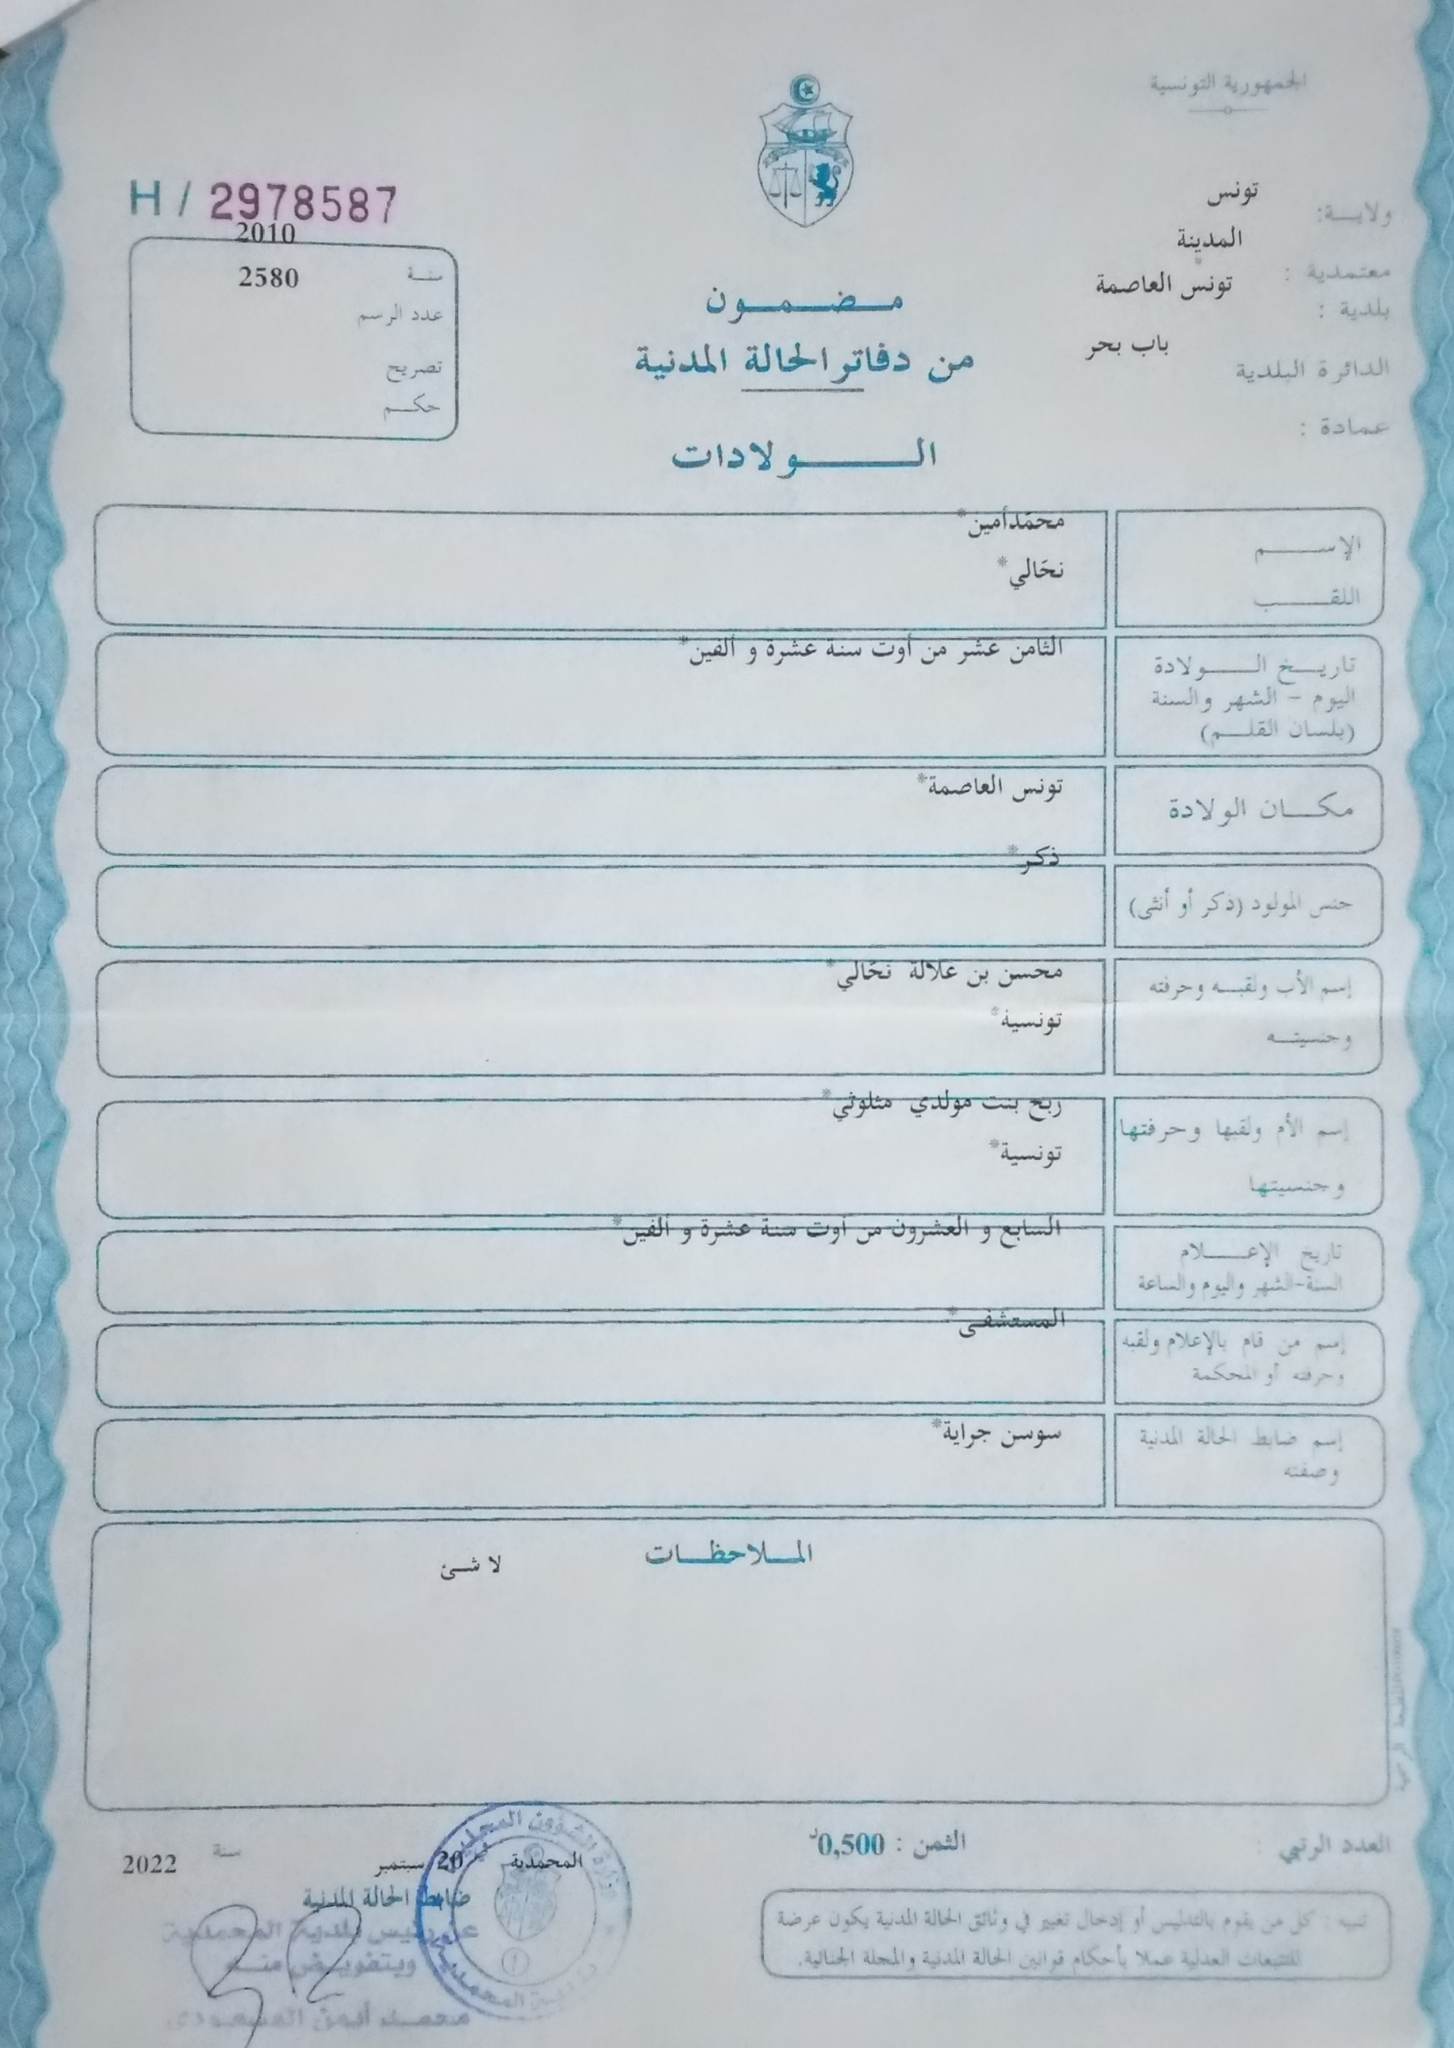 الجمهورية التونسية
ولايــة: تونس
معتمدية : المدينة
بلدية : تونس العاصمة
الدائرة البلدية باب بحر
عمادة :
H / 2978587
2010
سنة 2580
عدد الرسم
تصريح
حكــم
مــضــمــون
من دفاتر الحالة المدنية
الــــولادات
الإســــم محمّدأمين*
اللقــــب نحّالي*
تاريــخ الــــولادة الثامن عشر من أوت سنة عشرة و ألفين*
اليوم - الشهر والسنة
(بلسان القلــم)
مكــان الولادة تونس العاصمة*
جنس المولود (ذكر أو أنثى) ذكر*
إسم الأب ولقبــه وحرفته محسن بن علالة نحّالي*
وجنسيتــه تونسية*
إسم الأم ولقبها وحرفتها ربح بنت مولدي مثلوثي*
وجنسيتها تونسية*
تاريخ الإعـــلام السابع و العشرون من أوت سنة عشرة و ألفين*
السنة-الشهر واليوم والساعة
إسم من قام بالإعلام ولقبه المستشفى*
وحرفته أو المحكمة
إسم ضابط الحالة المدنية سوسن جراية*
وصفته
المــلاحظــات
لا شئ
العدد الرتبي :
الثمن : 0,500د
المحمدية في 20 سبتمبر سنة 2022
ضابط الحالة المدنية
عن رئيس بلدية المحمدية
وبتفويض منه
محمد أيمن المسعودي
تنبيه : كل من يقوم بالتدليس أو إدخال تغيير في وثائق الحالة المدنية يكون عرضة
للتتبعات العدلية عملا بأحكام قوانين الحالة المدنية والمجلة الجنائية.
وزارة الشؤون المحلية